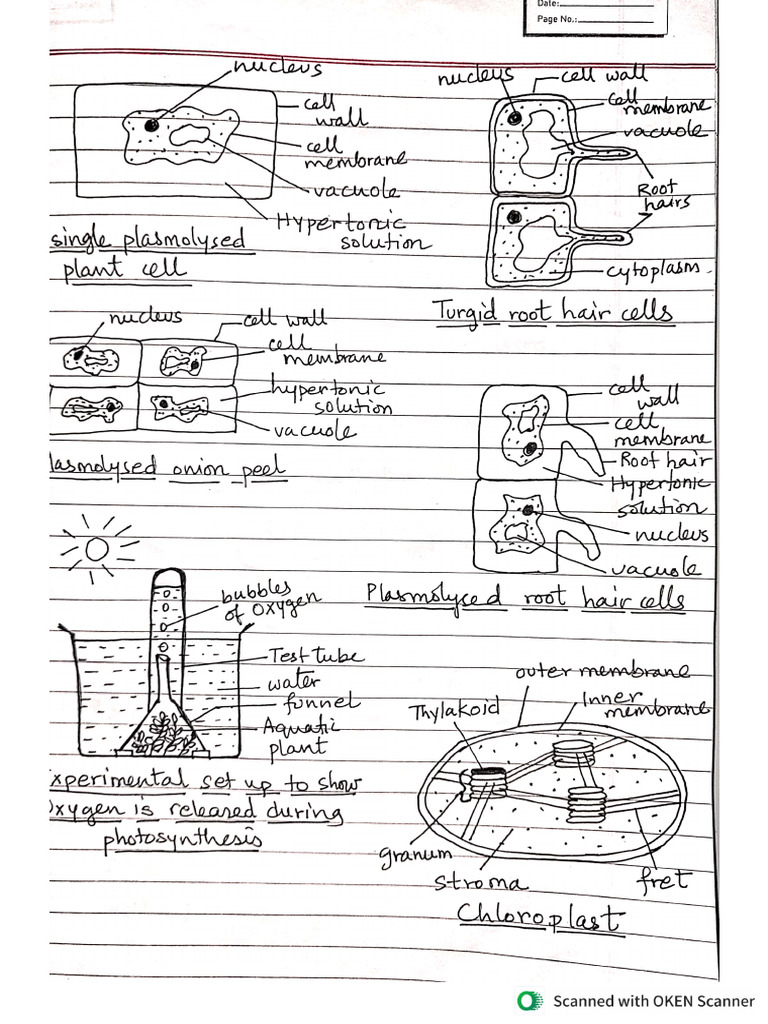 Date:
Page No.:
nucleus
cell
wall
cell
membrane
vacuole
Hypertonic
solution
single plasmolysed
plant cell
nucleus
cell wall
cell
membrane
vacuole
Root
hairs
cytoplasm
Turgid root hair cells
nucleus
cell wall
cell
membrane
hypertonic
solution
vacuole
lasmolysed onion peel
cell
wall
cell
membrane
Root hair
Hypertonic
solution
nucleus
vacuole
Plasmolysed root hair cells
bubbles
of oxygen
Test tube
water
funnel
Aquatic
plant
xperimental set up to show
oxygen is released during
photosynthesis
outer membrane
Inner
membrane
Thylakoid
granum
stroma
fret
Chloroplast
Scanned with OKEN Scanner